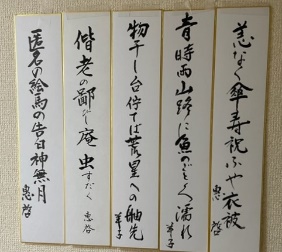 恙なく傘寿祝ふや衣被
惠啓
青時雨山路に魚のごとく濡れ
華子
物干し台倚てば荒星への舳先
華子
偕老の鄙びし庵虫すだく
惠啓
匿名の絵馬の告白神無月
惠啓